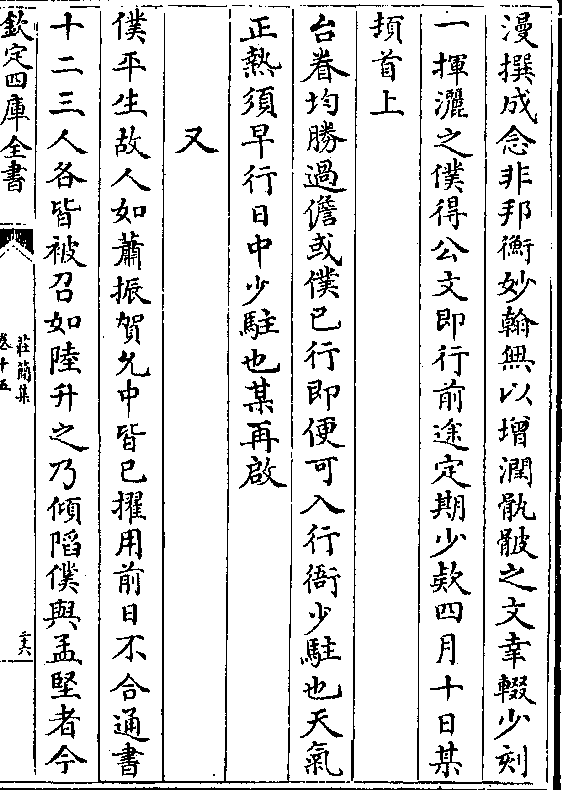 漫撰成念非邦衡妙翰無以增潤骫骳之文幸輟少刻
一揮灑之僕得公文即行前途定期少欵四月十日某
頓首上
台眷均勝過儋或僕已行即便可入行衙少駐也天氣
正熱須早行日中少駐也某再啟
又
僕平生故人如蕭振賀允中皆已擢用前日不合通書
十二三人各皆被召如陸升之乃傾䧟僕與孟堅者今
欽定四庫全書
莊簡集
卷十五